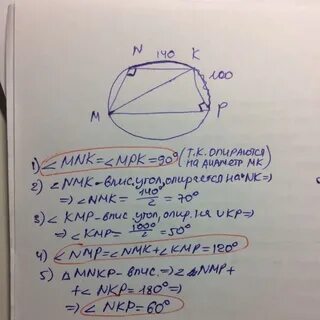 N 140 K
100
M P
1) ∠MNK=∠MPK=90° (Т.К. ОПИРАЮТСЯ
НА ДИАМЕТР МК)
2) ∠NMK - впис. угол, опирается на ᴗNK=>
=> ∠NMK = 140°/2 = 70°
3) ∠KMP - впис угол, опир. на ᴗKP=>
=> ∠KMP = 100°/2 = 50°
4) ∠NMP=∠NMK+∠KMP=120°
5) MNKP - впис. => ∠NMP+
+∠NKP=180° =>
=> ∠NKP=60°